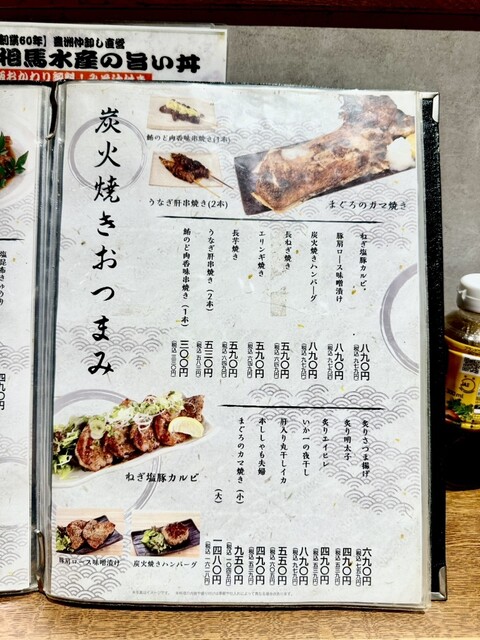 創業60年】豊洲仲卸し直営
相馬水産の旨い丼
炭火焼きおつまみ
鮪のど肉香味串焼き(1本)
うなぎ肝串焼き(2本)
まぐろのカマ焼き
ねぎ塩豚カルビ 八九〇円 (税込 九七九円)
豚肩ロース味噌漬け 八九〇円 (税込 九七九円)
炭火焼きハンバーグ 八九〇円 (税込 九七九円)
長ねぎ焼き 五九〇円 (税込 六四九円)
エリンギ焼き 五九〇円 (税込 六四九円)
長芋焼き 五九〇円 (税込 六四九円)
うなぎ肝串焼き(2本) 五三〇円 (税込 五八三円)
鮪のど肉香味串焼き(1本) 三〇〇円 (税込 三三〇円)
炙りさつま揚げ 六九〇円 (税込 七五九円)
炙り明太子 四九〇円 (税込 五三九円)
炙りエイヒレ 四九〇円 (税込 五三九円)
いか一の夜干し 八九〇円 (税込 九七九円)
肝入り丸干しイカ 五五〇円 (税込 六〇五円)
本ししゃも夫婦 四九〇円 (税込 五三九円)
まぐろのカマ焼き(小) 九五〇円 (税込 一〇四五円)
(大) 一四八〇円 (税込 一六二八円)
ねぎ塩豚カルビ
豚肩ロース味噌漬け
炭火焼きハンバーグ
塩昆布きゅうり
四九〇円